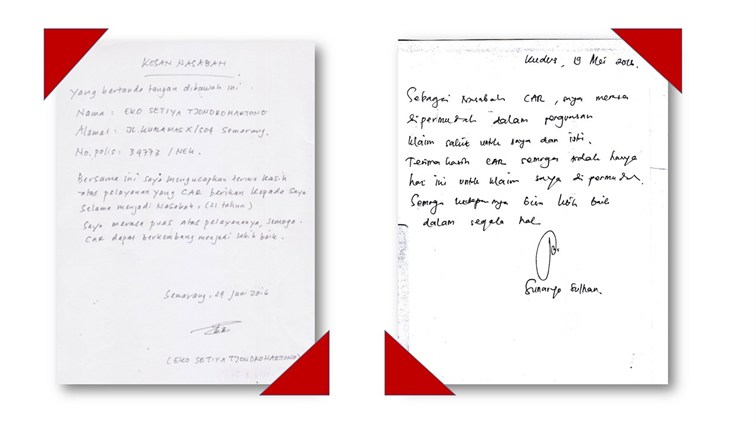 KESAN NASABAH
Yang bertanda tangan dibawah ini
Nama : EKO SETIYA TJONDROHARTONO
Alamat : JL. KUMAMAS X/504 Semarang.
No. polis : 34773 / NEK.
Bersama ini saya mengucapkan terima kasih
atas pelayanan yang CAR berikan kepada saya
selama menjadi Nasabah. (21 tahun)
Saya merasa puas atas pelayanannya, semoga
CAR dapat berkembang menjadi lebih baik.
Semarang, 29 Juni 2016
(EKO SETIYA TJONDROHARTONO)
Kudus, 19 Mei 2016.
Sebagai Nasabah CAR, saya merasa
dipermudah dalam pengurusan
klaim sakit untuk saya dan istri.
Terima kasih CAR semoga tidak hanya
kas ini untuk klaim saya dipermudah.
Semoga kedepannya bisa lebih baik
dalam segala hal
Sunaryo Sulhan.